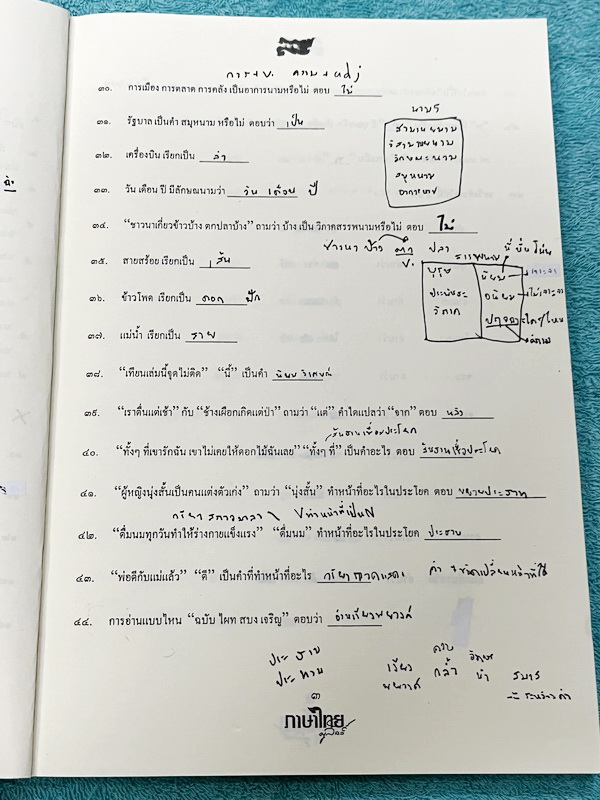 การ+v. ความ+adj
๓๐. การเมือง การตลาด การคลัง เป็นอาการนามหรือไม่ ตอบ ไม่
นาม 5
๓๑. รัฐบาล เป็นคำ สมุหนาม หรือไม่ ตอบว่า เป็น
สามานยนาม
วิสามานยนาม
ลักษณะนาม
สมุหนาม
อาการนาม
๓๒. เครื่องบิน เรียกเป็น ลำ
๓๓. วัน เดือน ปี มีลักษณนามว่า วัน เดือน ปี
๓๔. “ชาวนาเกี่ยวข้าวบ้าง ตกปลาบ้าง” ถามว่า บ้าง เป็น วิภาคสรรพนามหรือไม่ ตอบ ไม่
ชาวนา บ้าง ปลา
v. สรรพนาม นี่ นั่น โน่น
๓๕. สายสร้อย เรียกเป็น เส้น
บุรุษ นิยม เจาะจง
ประพันธ อนิยม ไม่เจาะจง
วิภาค ปฤจฉา ใคร/ไหน
ถาม
๓๖. ข้าวโพด เรียกเป็น ดอก ฝัก
๓๗. แม่น้ำ เรียกเป็น สาย
๓๘. “เทียนเล่มนี้จุดไม่ติด” “นี้” เป็นคำ นิยมวิเศษณ์
๓๙. “เราตื่นแต่เช้า” กับ “ช้างเผือกเกิดแต่ป่า” ถามว่า “แต่” คำใดแปลว่า “จาก” ตอบ หลัง
๔๐. “ทั้งๆ ที่เขารักฉัน เขาไม่เคยให้ดอกไม้ฉันเลย” “ทั้งๆ ที่” เป็นคำอะไร ตอบ
๔๑. “ผู้หญิงนุ่งสั้นเป็นคนแต่งตัวเก่ง” ถามว่า “นุ่งสั้น” ทำหน้าที่อะไรในประโยค ตอบ ขยายประธาน
๔๒. “ดื่มนมทุกวันทำให้ร่างกายแข็งแรง” “ดื่มนม” ทำหน้าที่อะไรในประโยค ประธาน
๔๓. “พ่อดีกับแม่แล้ว” “ดี” เป็นคำที่ทำหน้าที่อะไร กริยา
๔๔. การอ่านแบบไหน “ฉบับ ไผท สบง เจริญ” ตอบว่า
เรียง
พยางค์
ควบ
กล้ำ
นำ
๓
ภาษาไทย